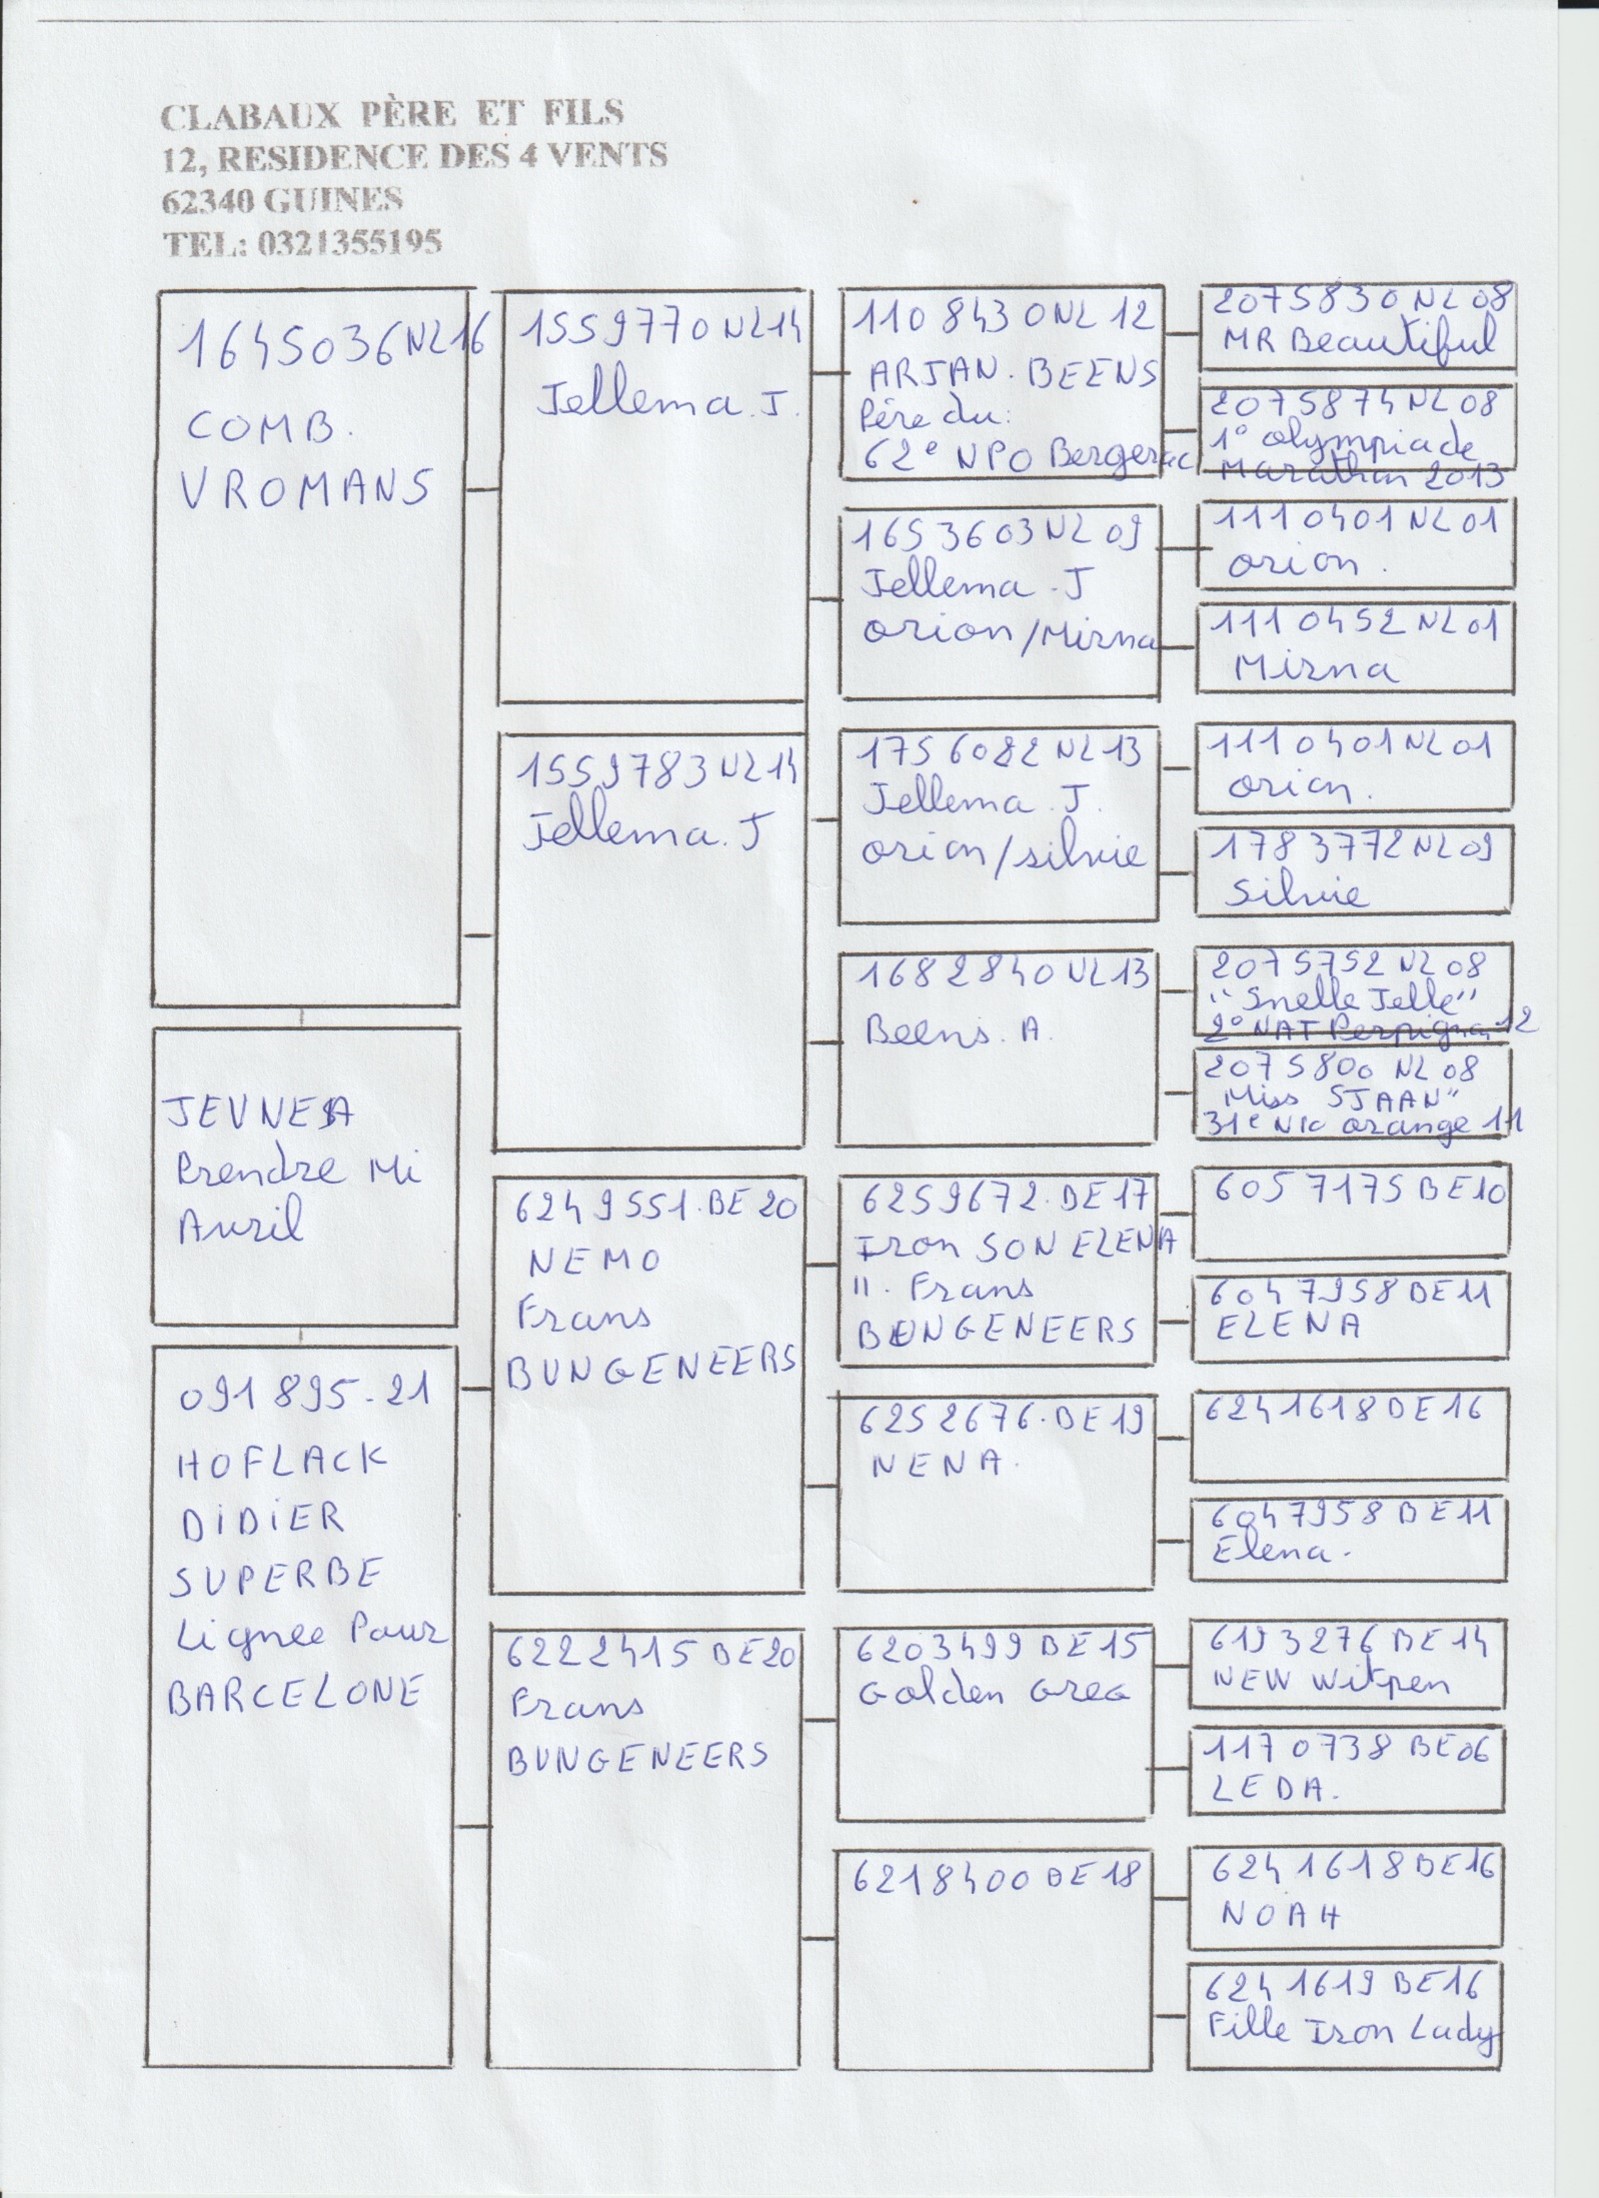 CLABAUX PÈRE ET FILS
12, RESIDENCE DES 4 VENTS
62340 GUINES
TEL: 0321355195
1645036NL16
COMB.
VROMANS
JEUNE
Prendre Mi
Avril
091895-21
HOFLACK
DIDIER
SUPERBE
Lignee Pour
BARCELONE
1559770NL14
Jellema.J.
1559783NL14
Jellema.J
6249551.BE20
NEMO
Frans
BUNGENEERS
6222415 BE20
Frans
BUNGENEERS
1108430NL12
ARJAN.BEENS
Père du:
62e NPO Bergerac
1653603NL09
Jellema.J
orion/Mirna
1756082NL13
Jellema.J.
orion/silvie
1682840NL13
Beens.A.
6259672.BE17
Iron SON ELENA
II. Frans
BUNGENEERS
6252676.BE19
NENA.
6203499 BE15
Golden Greg
6218400 BE18
2075830NL08
MR Beautiful
2075874NL08
1° olympiade
Marathon 2013
1110401NL01
orion.
1110452NL01
Mirna
1110401NL01
orion.
1783772NL09
Silvie
2075752NL08
"Snelle Jelle"
2° NAT Perpignan 12
2075800 NL08
Miss SJAAN"
31e orange 11
6057175BE10
6047958BE11
ELENA
6241618BE16
6047958BE11
Elena.
6193276BE14
NEW Witpen
1170738 BE06
LEDA.
6241618BE16
NOAH
6241619BE16
Fille Iron Lady